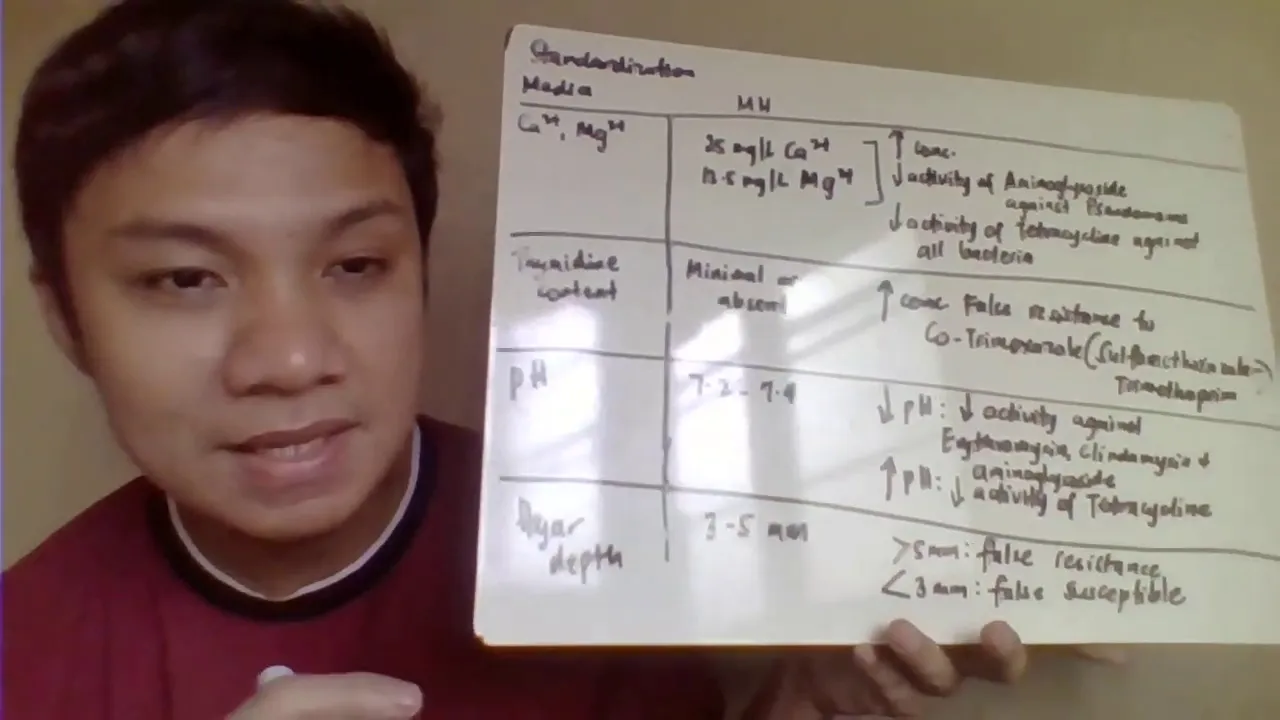 Standardization
Media
MH
Ca²⁺, Mg²⁺
25 mg/L Ca²⁺
12.5 mg/L Mg²⁺
↑ conc.
↓ activity of Aminoglycoside
against Pseudomonas
↓ activity of tetracycline against
all bacteria
Thymidine
content
Minimal or
absent
↑ conc False resistance to
Co-Trimoxazole (Sulfamethoxazole-
Trimethoprim
pH
7.2 - 7.4
↓ pH: ↓ activity against
Erythromycin, Clindamycin +
aminoglycoside
↑ pH: ↓ activity of Tetracycline
Agar
depth
3-5 mm
>5mm: false resistance
<3mm: false susceptible